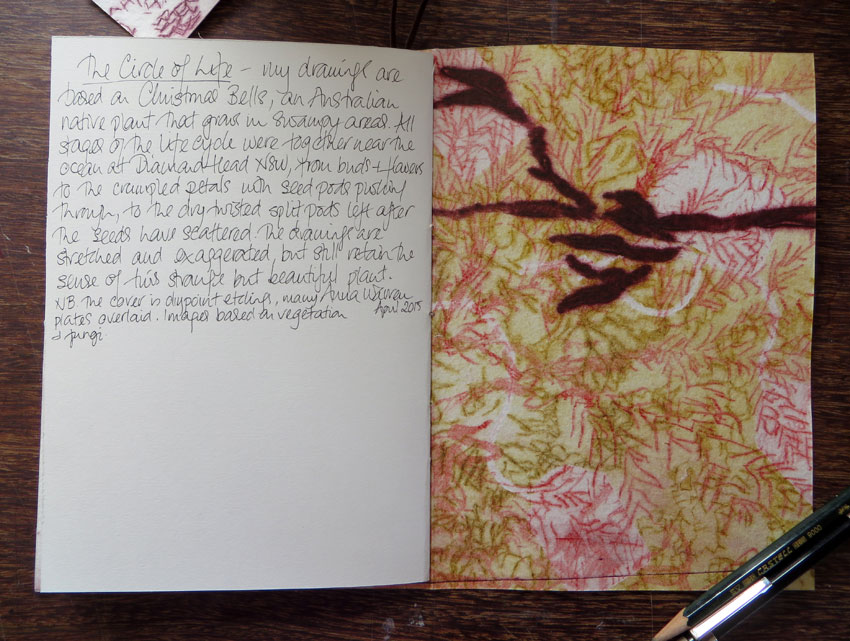 The Circle of Life – my drawings are
based on Christmas Bells, an Australian
native plant that grows in swampy areas. All
stages of the life cycle were together near the
ocean at Diamond Head NSW, from buds + flowers
to the crumpled petals with seed pods pushing
through, to the dry twisted split pods left after
the seeds have scattered. The drawings are
stretched and exaggerated, but still retain the
sense of this strange but beautiful plant.
NB The cover is drypoint etchings, many
plates overlaid. Images based on vegetation
& fungi
Anna Warren
April 2015
CASTELL 9000